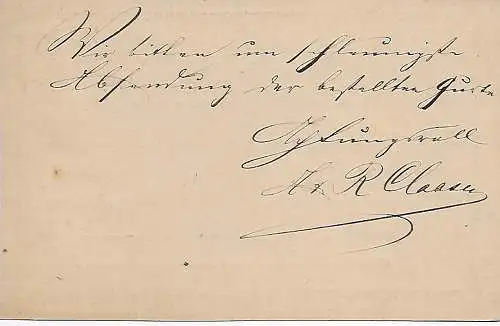 Wir bitten um schleunigste
Absendung der bestellten
Achtungsvoll
A & R Claasen